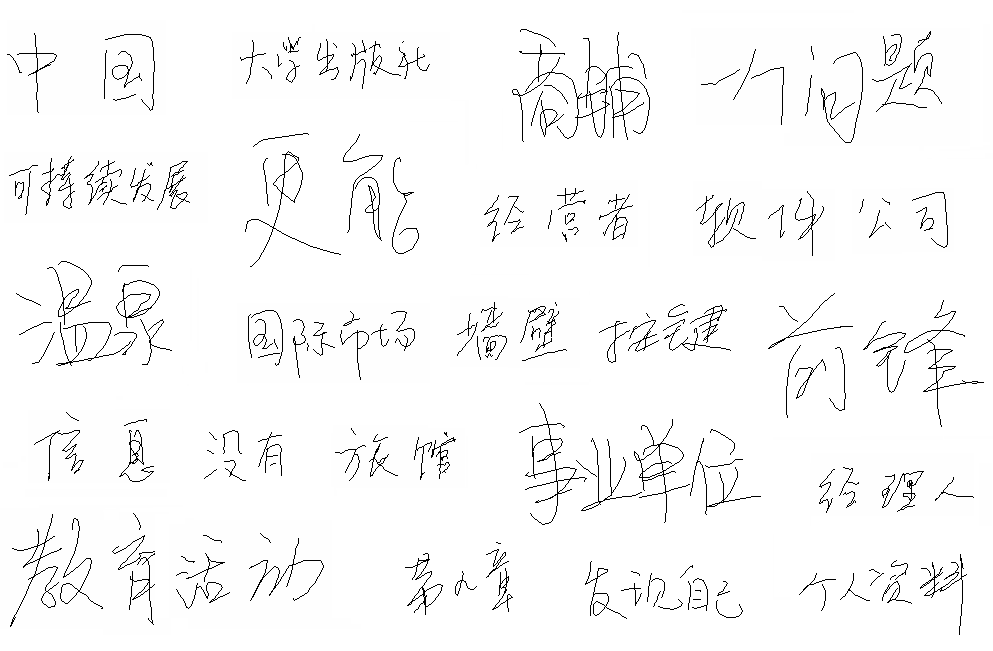 中国 大学出版社 商铺 一个问题
可持续发展 更能 经营者 软件公司
温泉 国际市场 墙壁 按键 前锋
信息 没有 旅馆 事业单位 经理人
教育活动 第九章 发现自己 个人资料